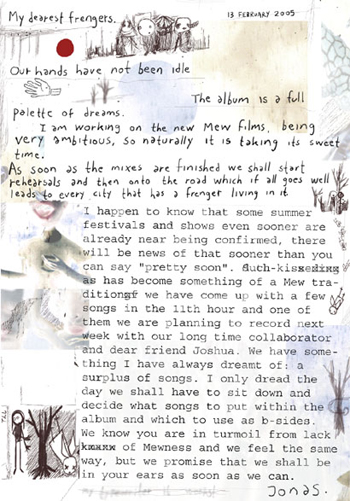 My dearest frengers.
13 FEBRUARY 2005
Our hands have not been idle
The album is a full
palette of dreams.
I am working on the new Mew films, being
very ambitious, so naturally it is taking its sweet
time.
As soon as the mixes are finished we shall start
rehearsals and then onto the road which if all goes well
leads to every city that has a frenger living in it.
I happen to know that some summer
festivals and shows even sooner are
already near being confirmed, there
will be news of that sooner than you
can say "pretty soon".
as has become something of a Mew tra-
dition we have come up with a few
songs in the 11th hour and one of
them we are planning to record next
week with our long time collaborator
and dear friend Joshua. We have some-
thing I have always dreamt of: a
surplus of songs. I only dread the
day we shall have to sit down and
decide what songs to put within the
album and which to use as b-sides.
We know you are in turmoil from lack
of Mewness and we feel the same
way, but we promise that we shall be
in your ears as soon as we can.
Jonas.